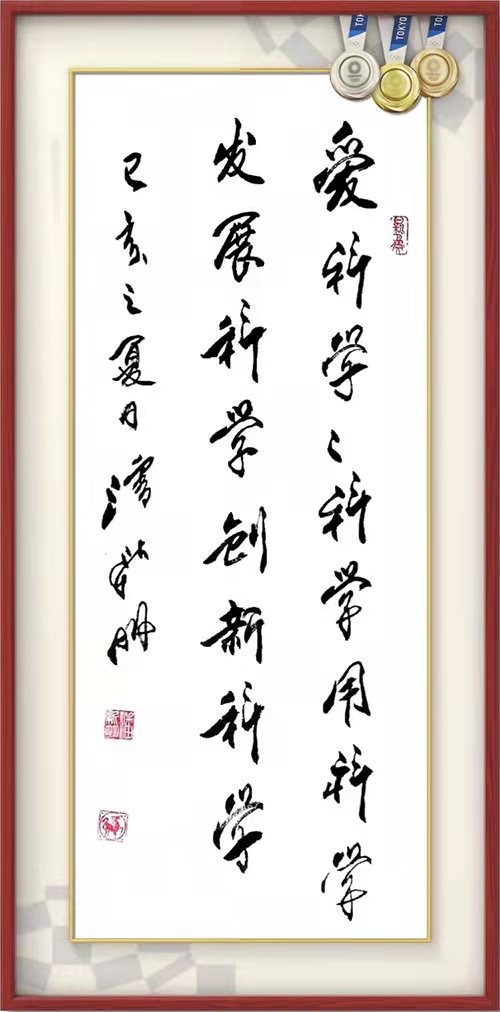 TOKYO
TOKYO
TOKYO
爱科学〻科学用科学
发展科学创新科学
己亥之夏月